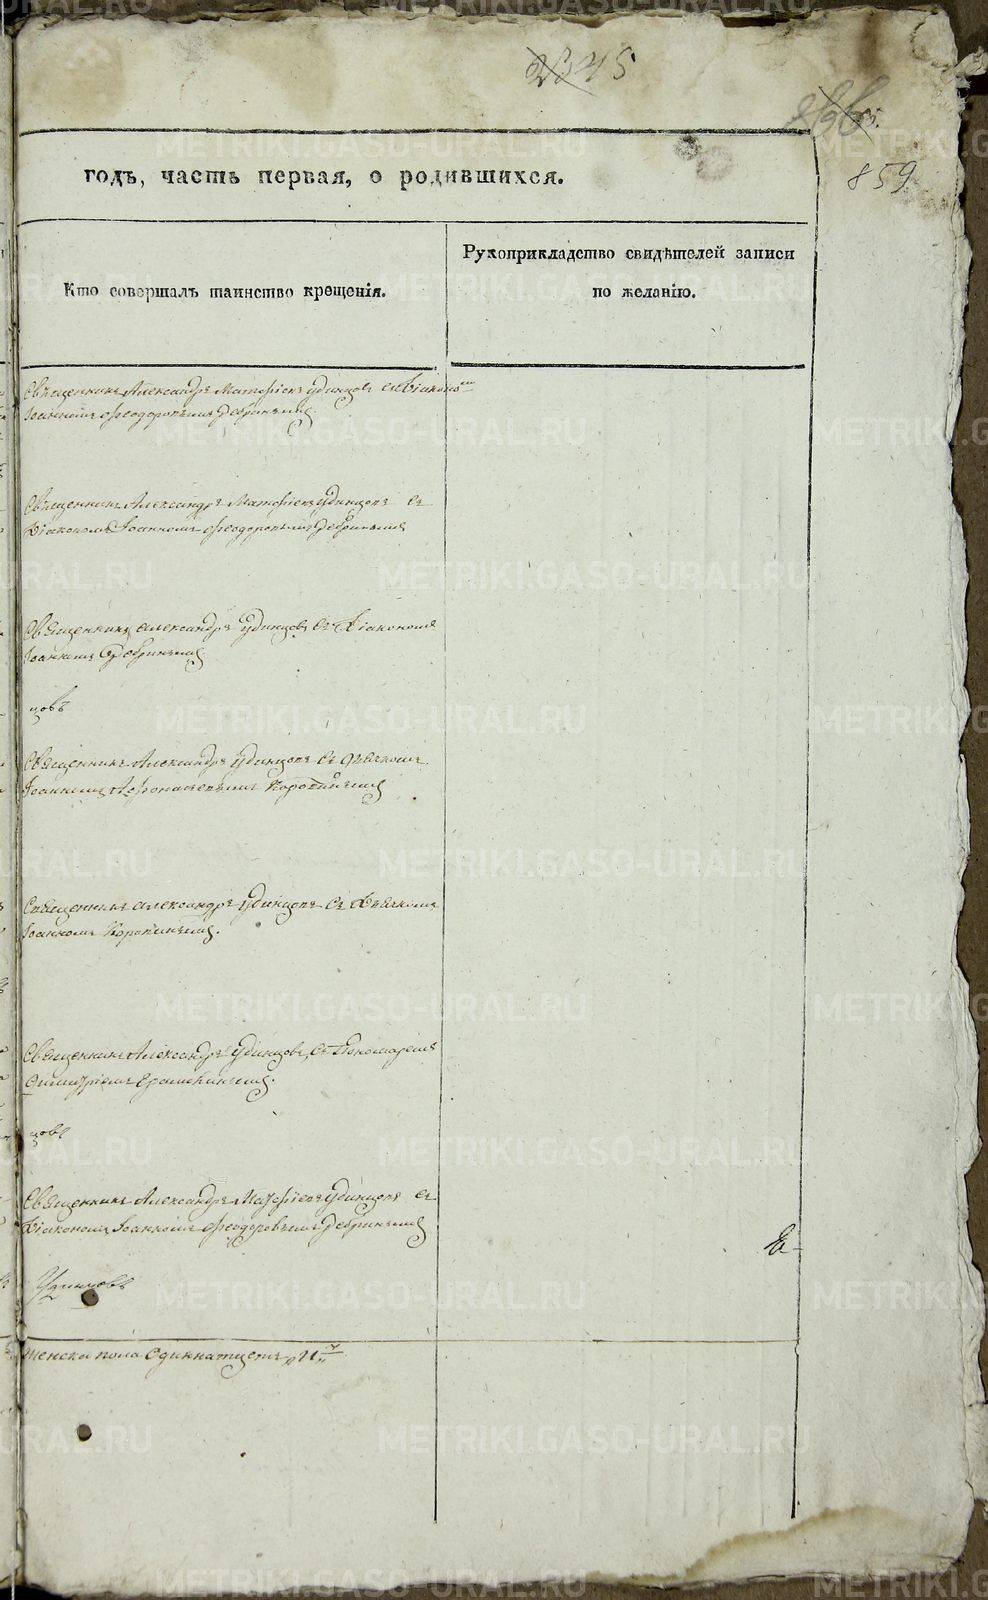 859
годъ, часть первая, о родившихся.
Кто совершалъ таинство крещенія.
Рукоприкладство свидѣтелей записи
по желанію.
Священникъ Александръ Матфіевъ Удинцовъ съ Діакономъ
Іоанномъ Феодоровымъ
Священникъ Александръ Матфіевъ Удинцовъ съ
Діакономъ Іоанномъ Феодоровымъ
Священникъ Александръ Удинцовъ съ Діакономъ
Іоанномъ
цовъ
Священникъ Александръ Удинцовъ съ дьячкомъ
Іоанномъ Афонасьевымъ Коровинымъ
Священникъ Александръ Удинцовъ съ Дьячкомъ
Іоанномъ Коровинымъ.
Священникъ Александръ Удинцовъ, съ Пономаремъ
Димитріемъ
цовъ
Священникъ Александръ Матфіевъ Удинцовъ съ
Діакономъ Іоанномъ Феодоровымъ
Удинцовъ
женска пола одиннатцеть
METRIKI.GASO-URAL.RU